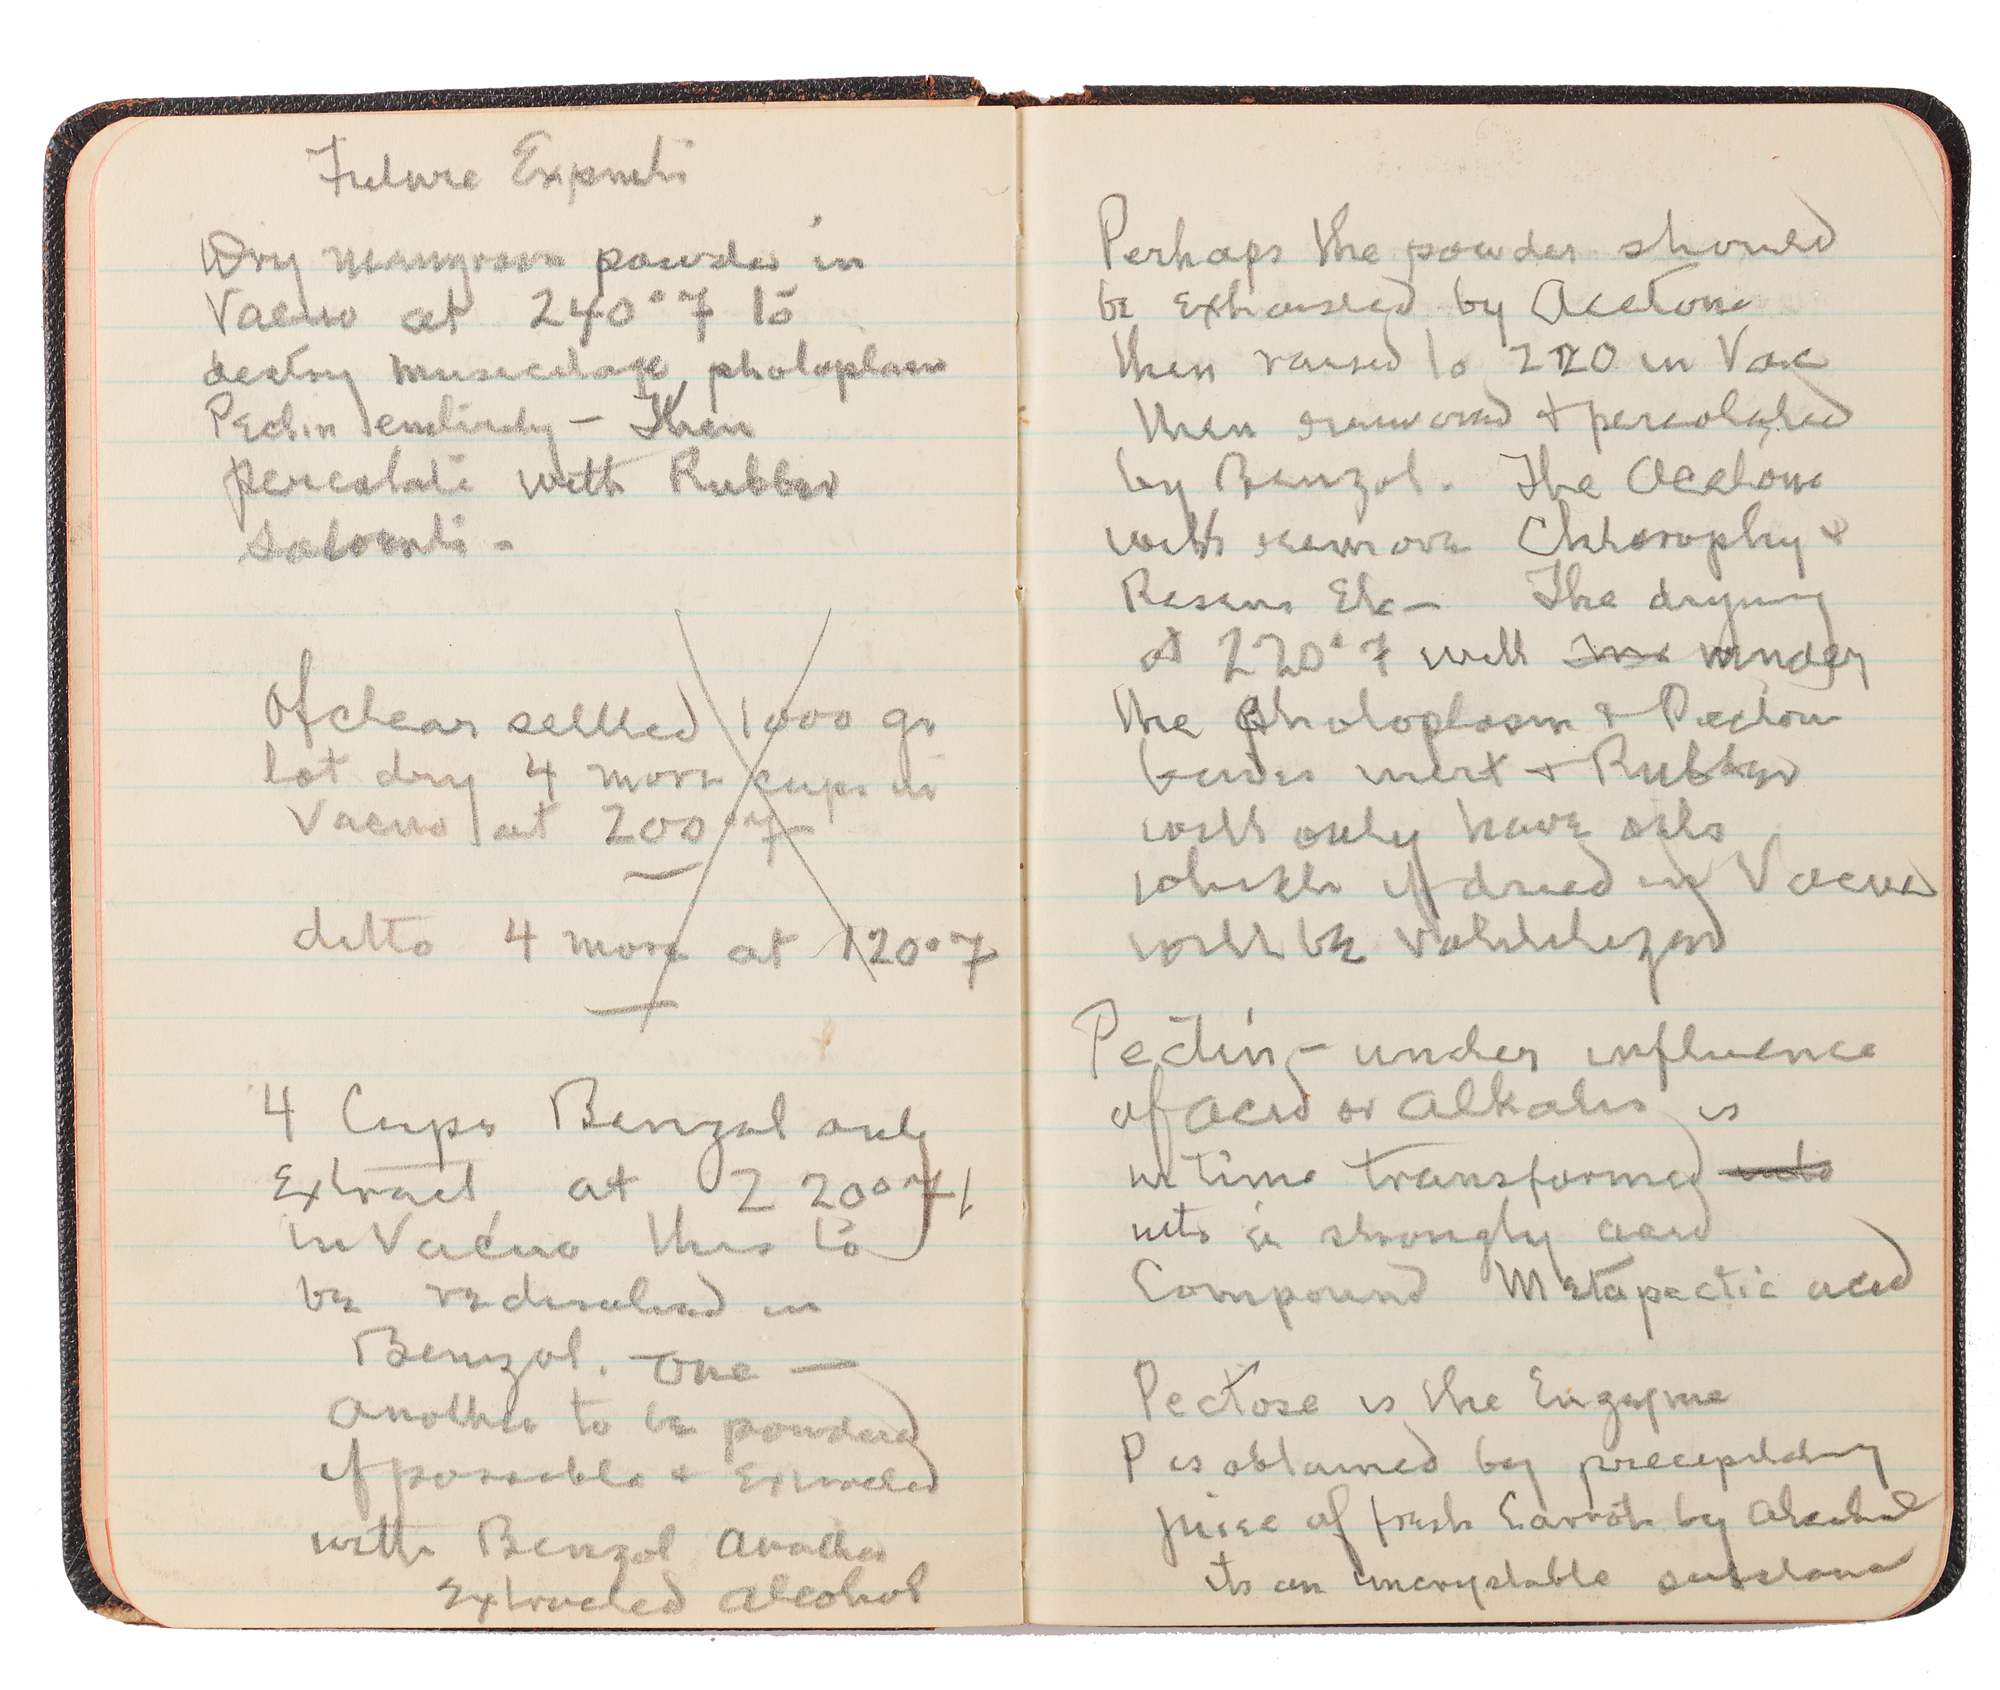 Future Expmts
Dry mangrove powder in
Vacuo at 240°F to
destroy muscilage, photoplasm
Pectin entirely – Then
percolate with Rubber
Solvents –
Of clear settled 1000 gr
lot dry 4 more cups in
Vacuo at 200°F
ditto 4 more at 120°F
4 Cups Benzol only
Extract at 220°F
in Vacuo this to
be redissolved in
Benzol. – one –
another to be powdered
if possable & Extracted
with Benzol another
Extracted alcohol
Perhaps the powder should
be Exhausted by Acetone
then raised to 220 in Vac
then removed & percolated
by Benzol. The Acetone
will remove Chlorophy &
Resens Etc – The drying
at 220°F will render
the photoplasm & Pectin
inert & Rubber
will only have oils
which if dried in Vacuo
will be volitilized
Pectin – under influence
of acid or alkalis is
in time transformed into
into a strongly acid
Compound Metapectic acid
Pectose is the Enzyme
P is obtained by precepitating
juice of fresh Carrots by alcohol
its an uncrystable substance